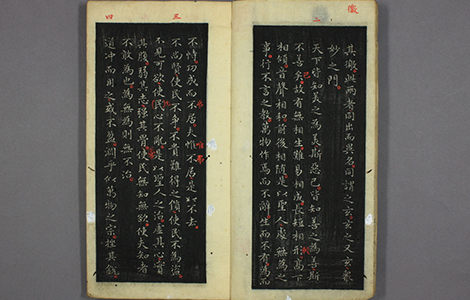 徼
二
其徼此兩者同出而異名同謂之玄玄之又玄衆
妙之門
天下皆知美之為美斯惡已皆知善之為善斯
不善矣故有無相生難易相成長短相形高下
相傾音聲相和前後相隨是以聖人處無為之
事行不言之教萬物作焉而不辭生而不有為而
三
不恃功成而不居夫惟不居是以不去
不尚賢使民不爭不貴難得之貨使民不為盜
不見可欲使民心不亂是以聖人之治虛其心實
其腹弱其志強其骨使民無知無欲使夫知者
不敢為也為無為則無不治
道沖而用之或不盈淵乎似萬物之宗挫其銳
四